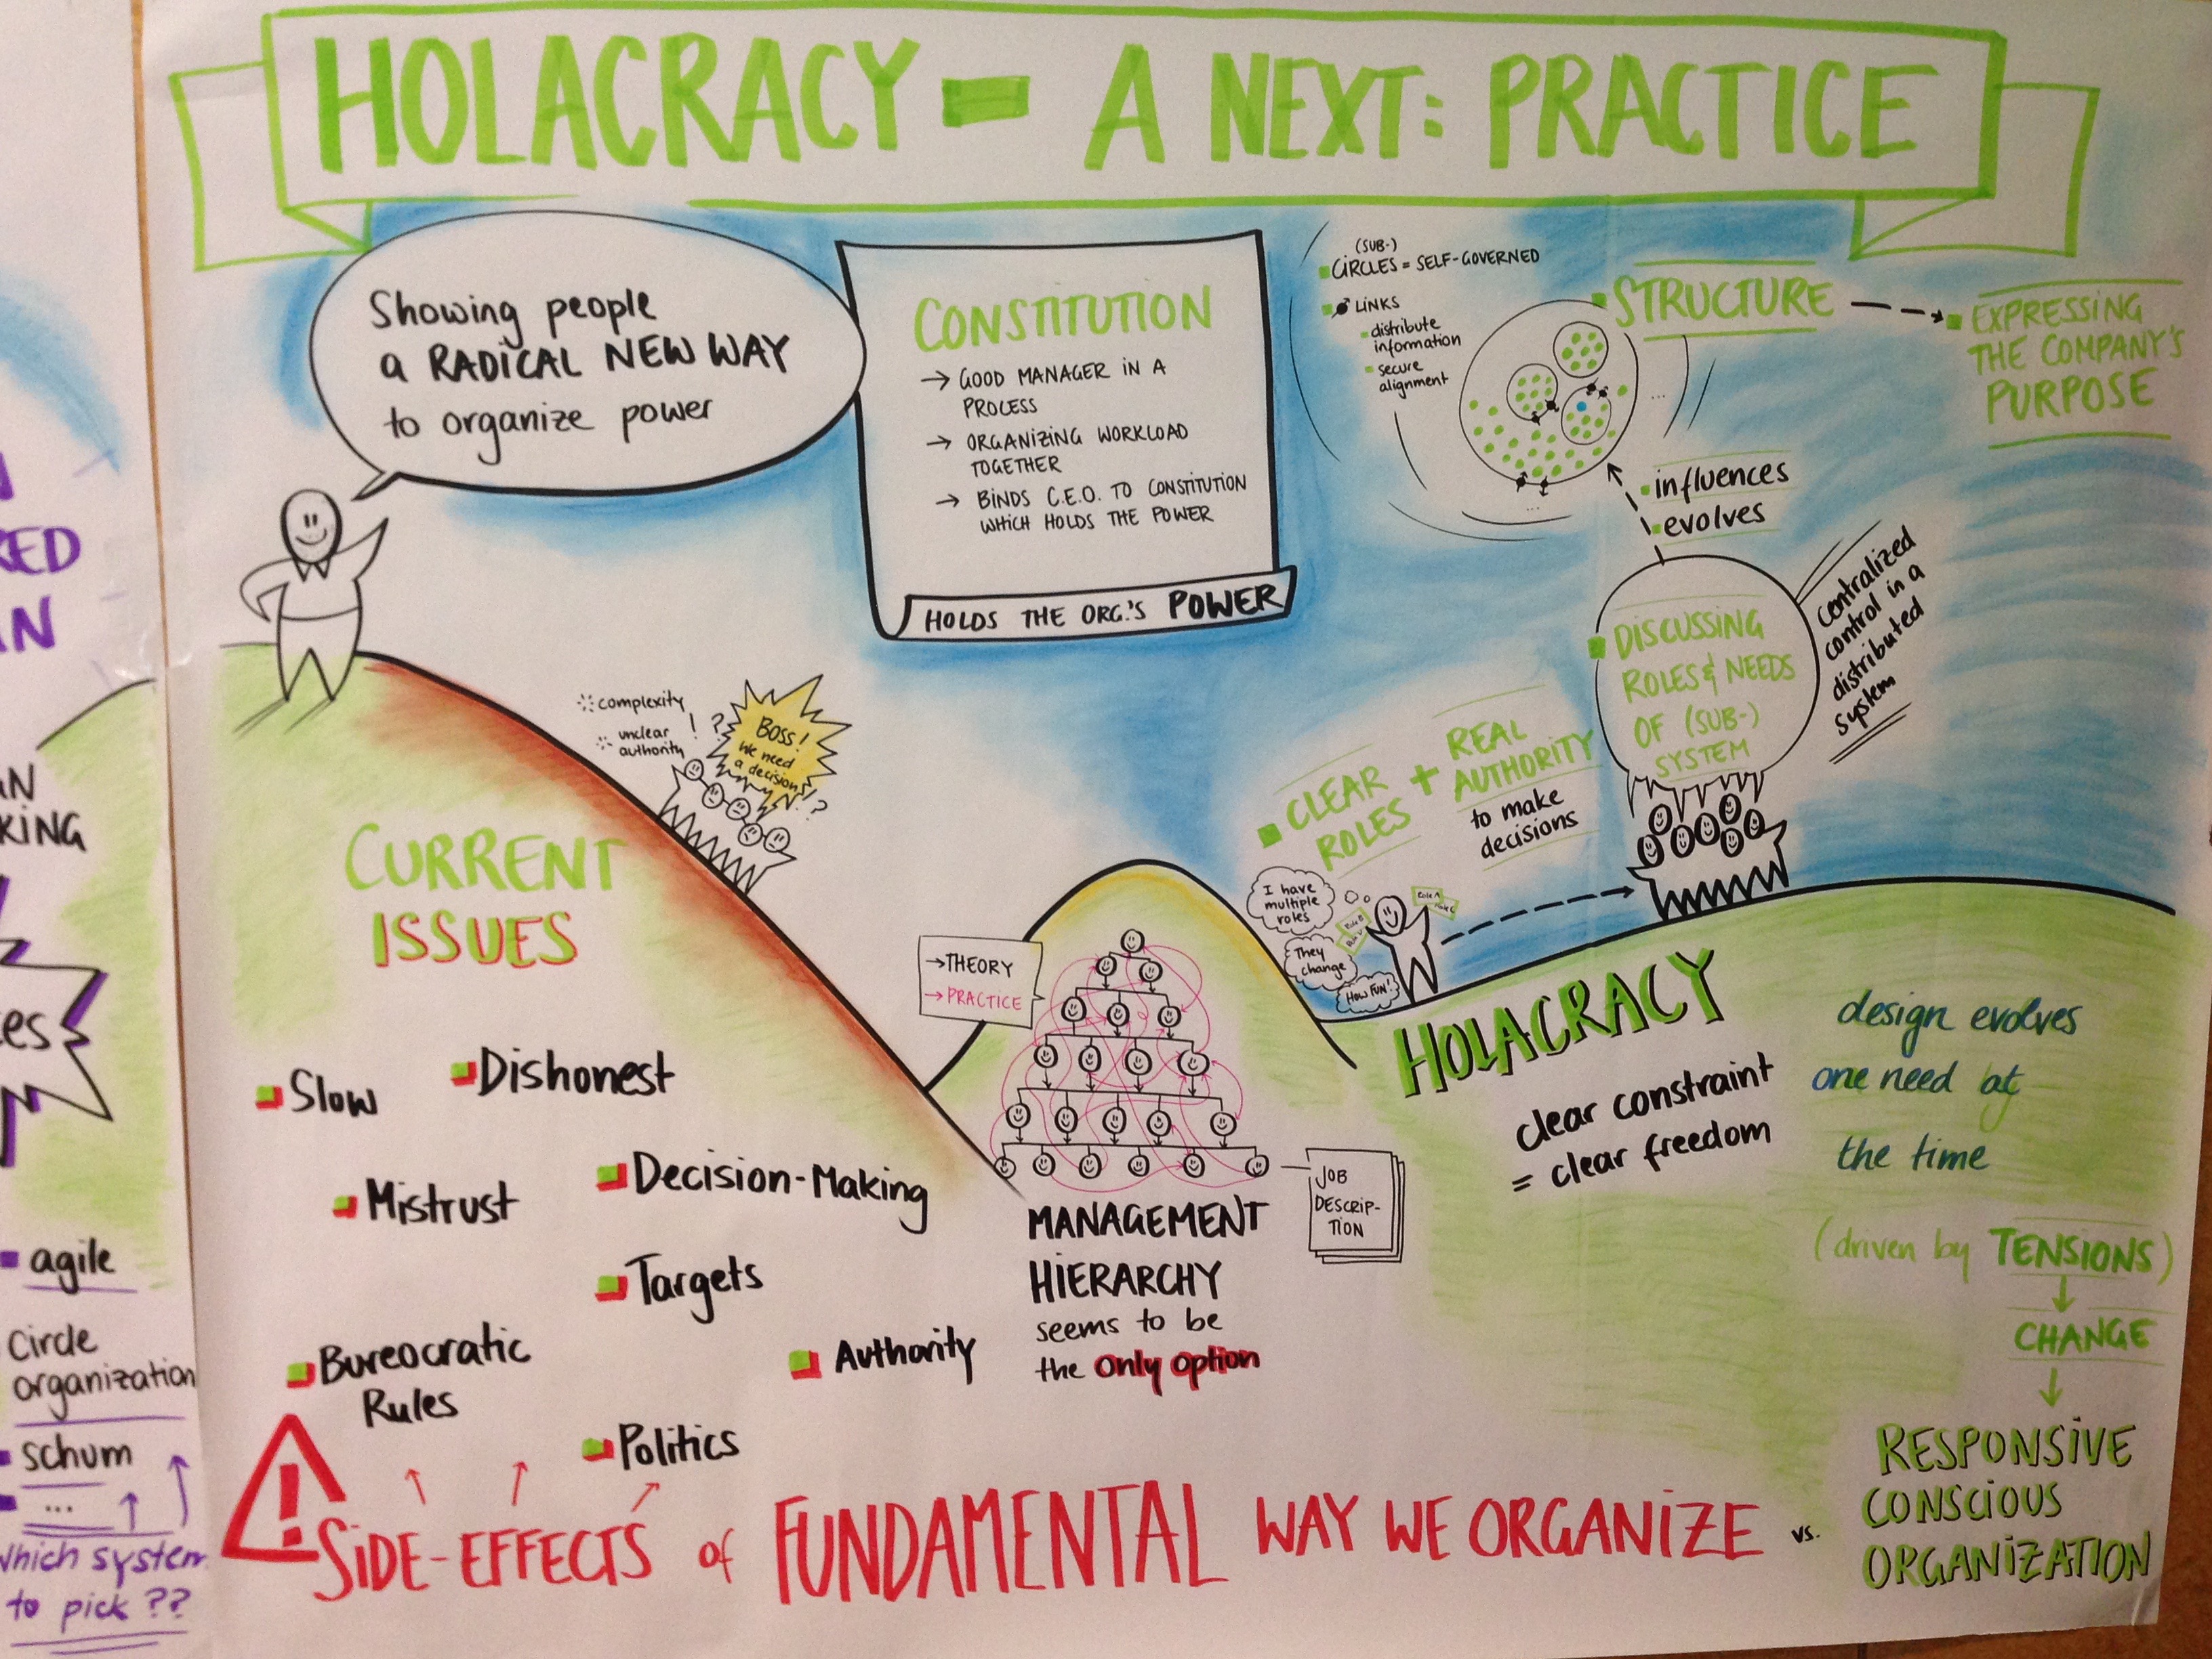 HOLACRACY - A NEXT: PRACTICE
Showing people
a RADICAL NEW WAY
to organize power
CONSTITUTION
→ GOOD MANAGER IN A
PROCESS
→ ORGANIZING WORKLOAD
TOGETHER
→ BINDS C.E.O. TO CONSTITUTION
WHICH HOLDS THE POWER
HOLDS THE ORG.'S POWER
(SUB-)
CIRCLES = SELF-GOVERNED
LINKS
distribute
information
secure
alignment
...
...
STRUCTURE
EXPRESSING
THE COMPANY'S
PURPOSE
influences
evolves
DISCUSSING
ROLES & NEEDS
OF (SUB-)
SYSTEM
centralized
control in a
distributed
system
CLEAR
ROLES
+
REAL
AUTHORITY
to make
decisions
I have
multiple
roles
They
change
HOW FUN!
complexity
unclear
authority
! ?
BOSS!
We need
a decision!
!?
CURRENT
ISSUES
Slow
Dishonest
Mistrust
Decision-Making
Targets
Bureocratic
Rules
Authority
Politics
→ THEORY
→ PRACTICE
JOB
DESCRIP-
TION
MANAGEMENT
HIERARCHY
seems to be
the only option
HOLACRACY
clear constraint
= clear freedom
design evolves
one need at
the time
(driven by TENSIONS)
CHANGE
RESPONSIVE
CONSCIOUS
ORGANIZATION
! SIDE-EFFECTS of FUNDAMENTAL WAY WE ORGANIZE vs.
RED
KING
agile
Circle
organization
schum
...
which system
to pick ??